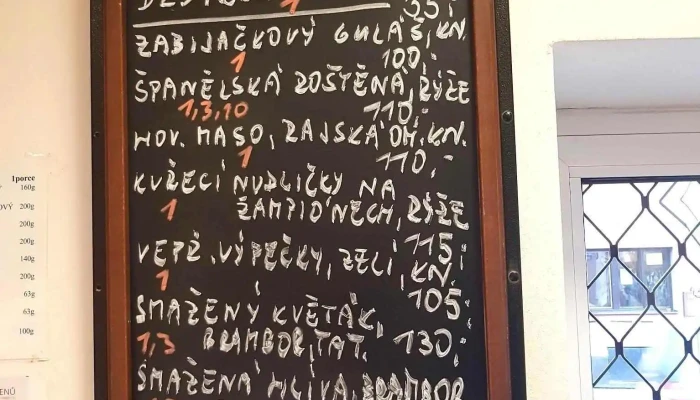 35,-
1
ZABIJAČKOVÝ GULÁŠ, KN.
1 100,-
ŠPANĚLSKÁ ROŠTĚNÁ, RÝŽE
1,3,10 110,-
HOV. MASO, RAJSKÁ OM. KN.
1 110,-
KUŘECÍ NUDLIČKY NA
1 ŽAMPIONECH, RÝŽE
115,-
VEPŘ. VÝPEČKY, ZELÍ, KN.
1 105,-
SMAŽENÝ KVĚTÁK,
1,3 BRAMBOR, TAT. 130,-
SMAŽENÁ HLÍVA, BRAMBOR
1porce
160g
OVÝ 200g
200g
200g
140g
200g
63g
63g
100g
ENŮ